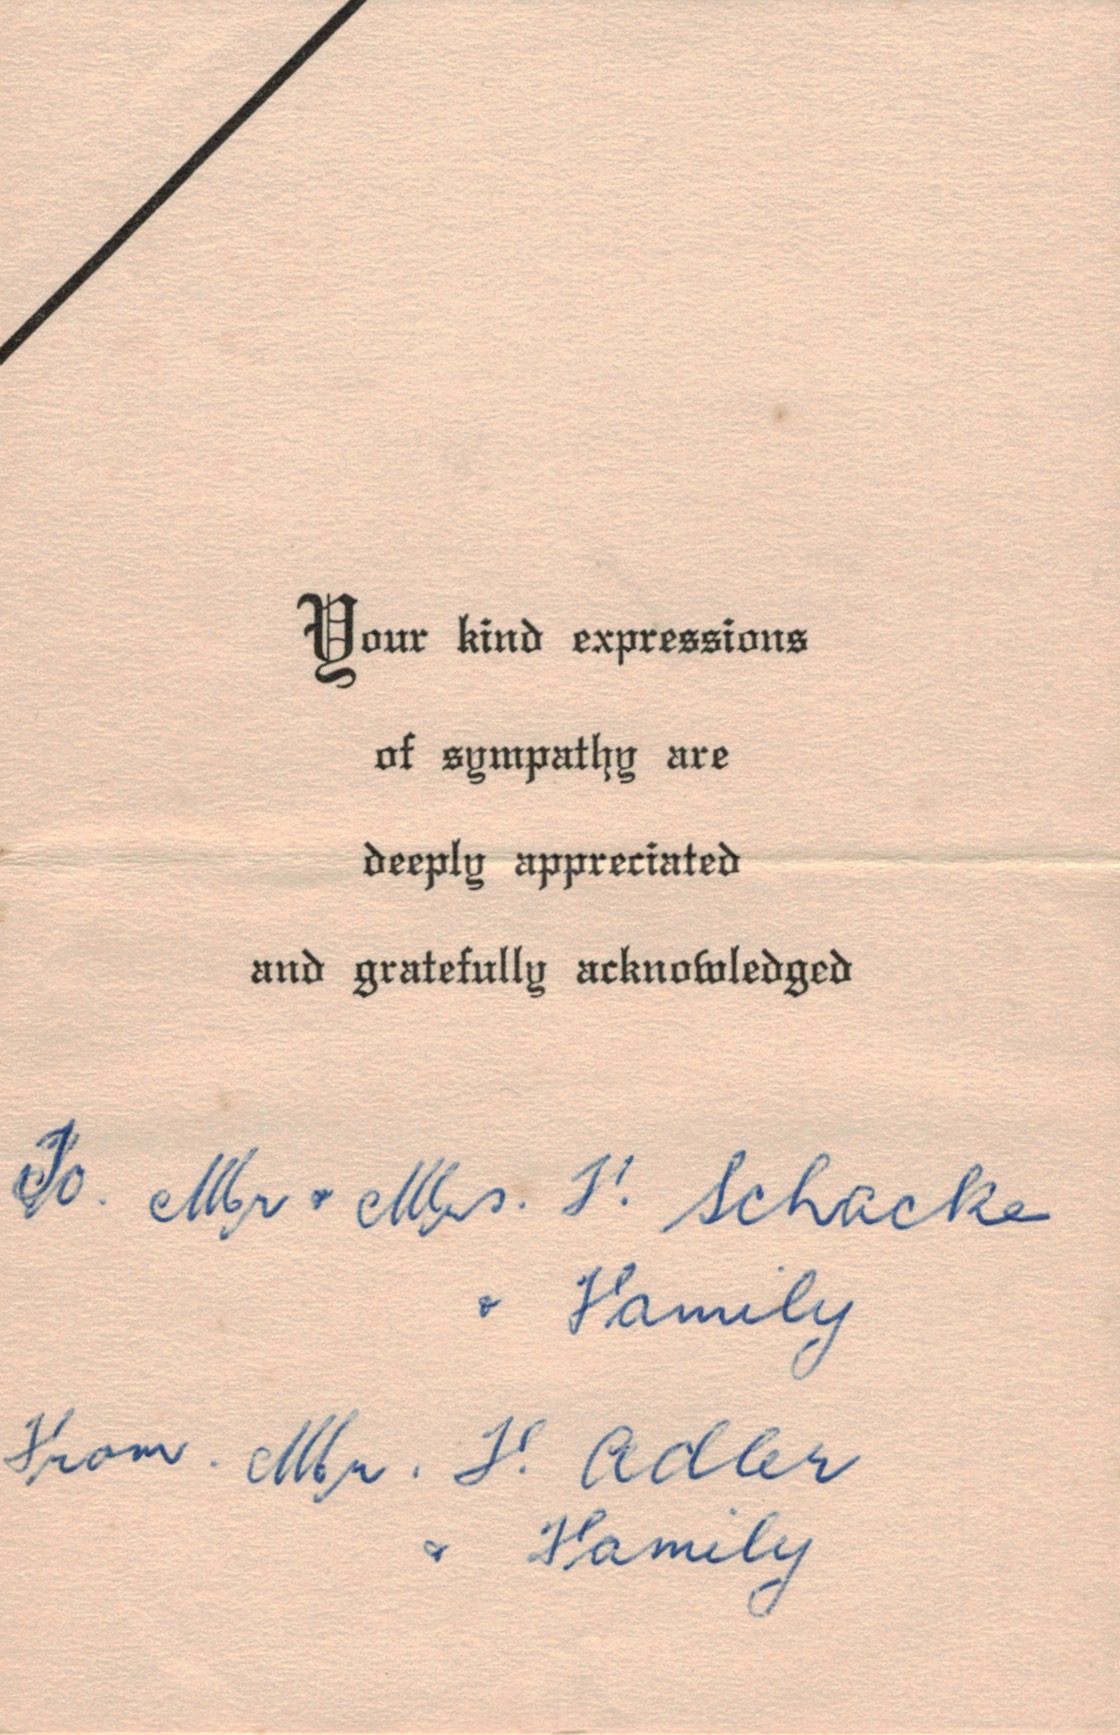 Your kind expressions
of sympathy are
deeply appreciated
and gratefully acknowledged
To. Mr & Mrs. F. Schacke
& Family
From. Mr. F. Adler
& Family